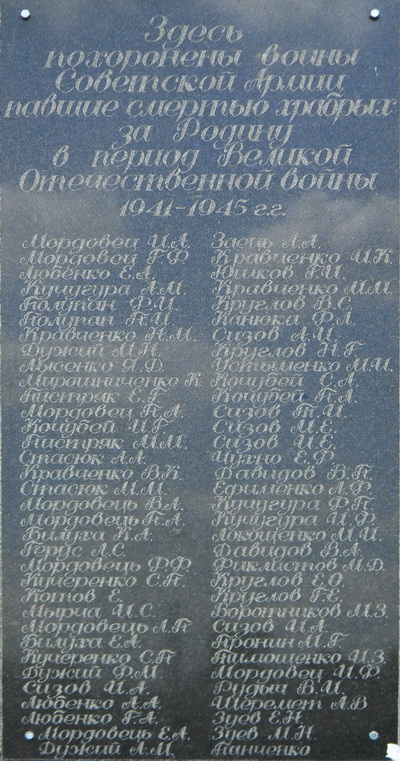 Здесь
похоронены воины
Советской Армии
павшие смертью храбрых
за Родину
в период Великой
Отечественной войны
1941-1945 г.г.
Мордовец И.А.
Мордовец Г.Ф.
Любенко Е.А.
Кучугура А.М.
Полупан Ф.И.
Полупан П.И.
Кравченко Н.М.
Дужий М.Н.
Лысенко Я.Д.
Мирошниченко К.
Пистряк Е.Г.
Мордовец П.А.
Кочубей И.Г.
Пистряк М.М.
Стасюк А.А.
Кравченко В.К.
Стасюк М.М.
Мордовець В.А.
Мордовець П.А.
Билуха К.А.
Герус Л.С.
Мордовець Ф.Ф.
Кучеренко С.П.
Котов Е.
Мырча И.С.
Мордовець Л.П
Билуха Е.А.
Кучеренко С.П
Дужий Ф.М.
Сизов И.А.
Любенко А.А.
Любенко Г.А.
Мордовець Е.А.
Дужий А.М.
Заець А.А.
Кравченко И.К.
Юшков Г.И.
Кравченко М.М.
Круглов В.С.
Канюка Ф.Л.
Сизов А.И.
Круглов Н.Г
Устыменко М.И.
Кочубей С.А.
Кочубей П.А.
Сизов Т.И.
Сизов И.Е.
Сизов И.Е.
Чухно Е.Ф.
Давидов В.П.
Ефименко А.Ф.
Кучугура Ф.П.
Кучугура И.Ф.
Локощенко М.И.
Давидов В.А.
Фиклистов М.Д.
Круглов Е.О.
Круглов Г.Е.
Воротников М.З.
Сизов И.А.
Пронин М.Г.
Тимошенко И.З.
Мордовец И.Ф.
Рудыч В.И.
Шеремет А.В
Зуев Е.Н.
Зуев М.Н.
Панченко